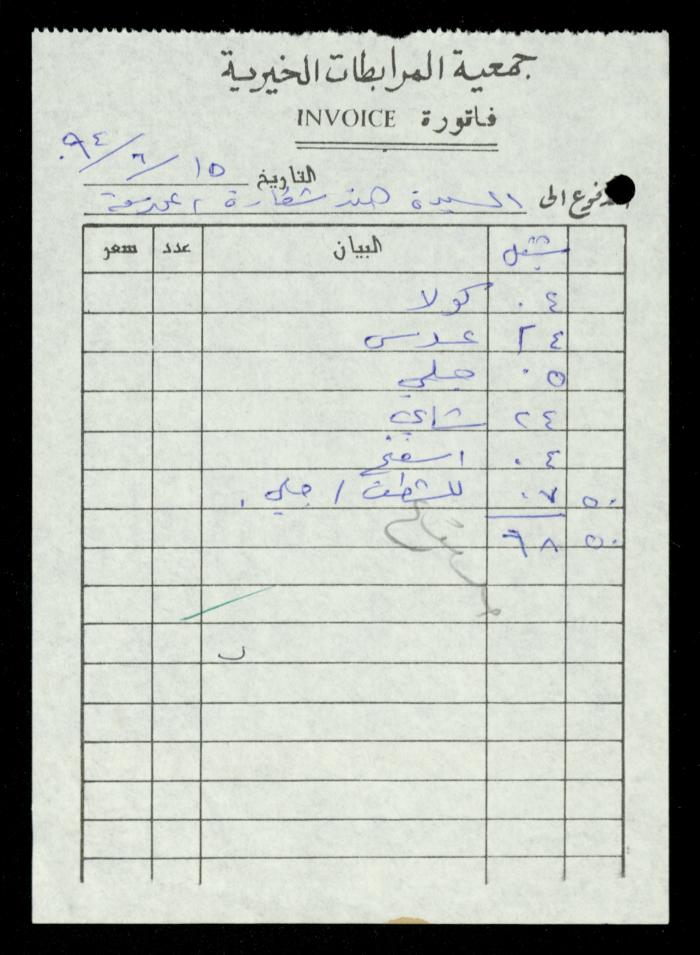 جمعية المرابطات الخيرية
فاتورة INVOICE
التاريخ ١٥/٦/٩٤
المدفوع الى السيدة هند شقارة /
شيقل البيان عدد سعر
٠٤ كولا
٢٤ عدس
٠٥ جلي
٢٤ شاي
٠٤ اسفنج
٥٠ ٠٧ للشطف / جلي .
٥٠ ٦٨